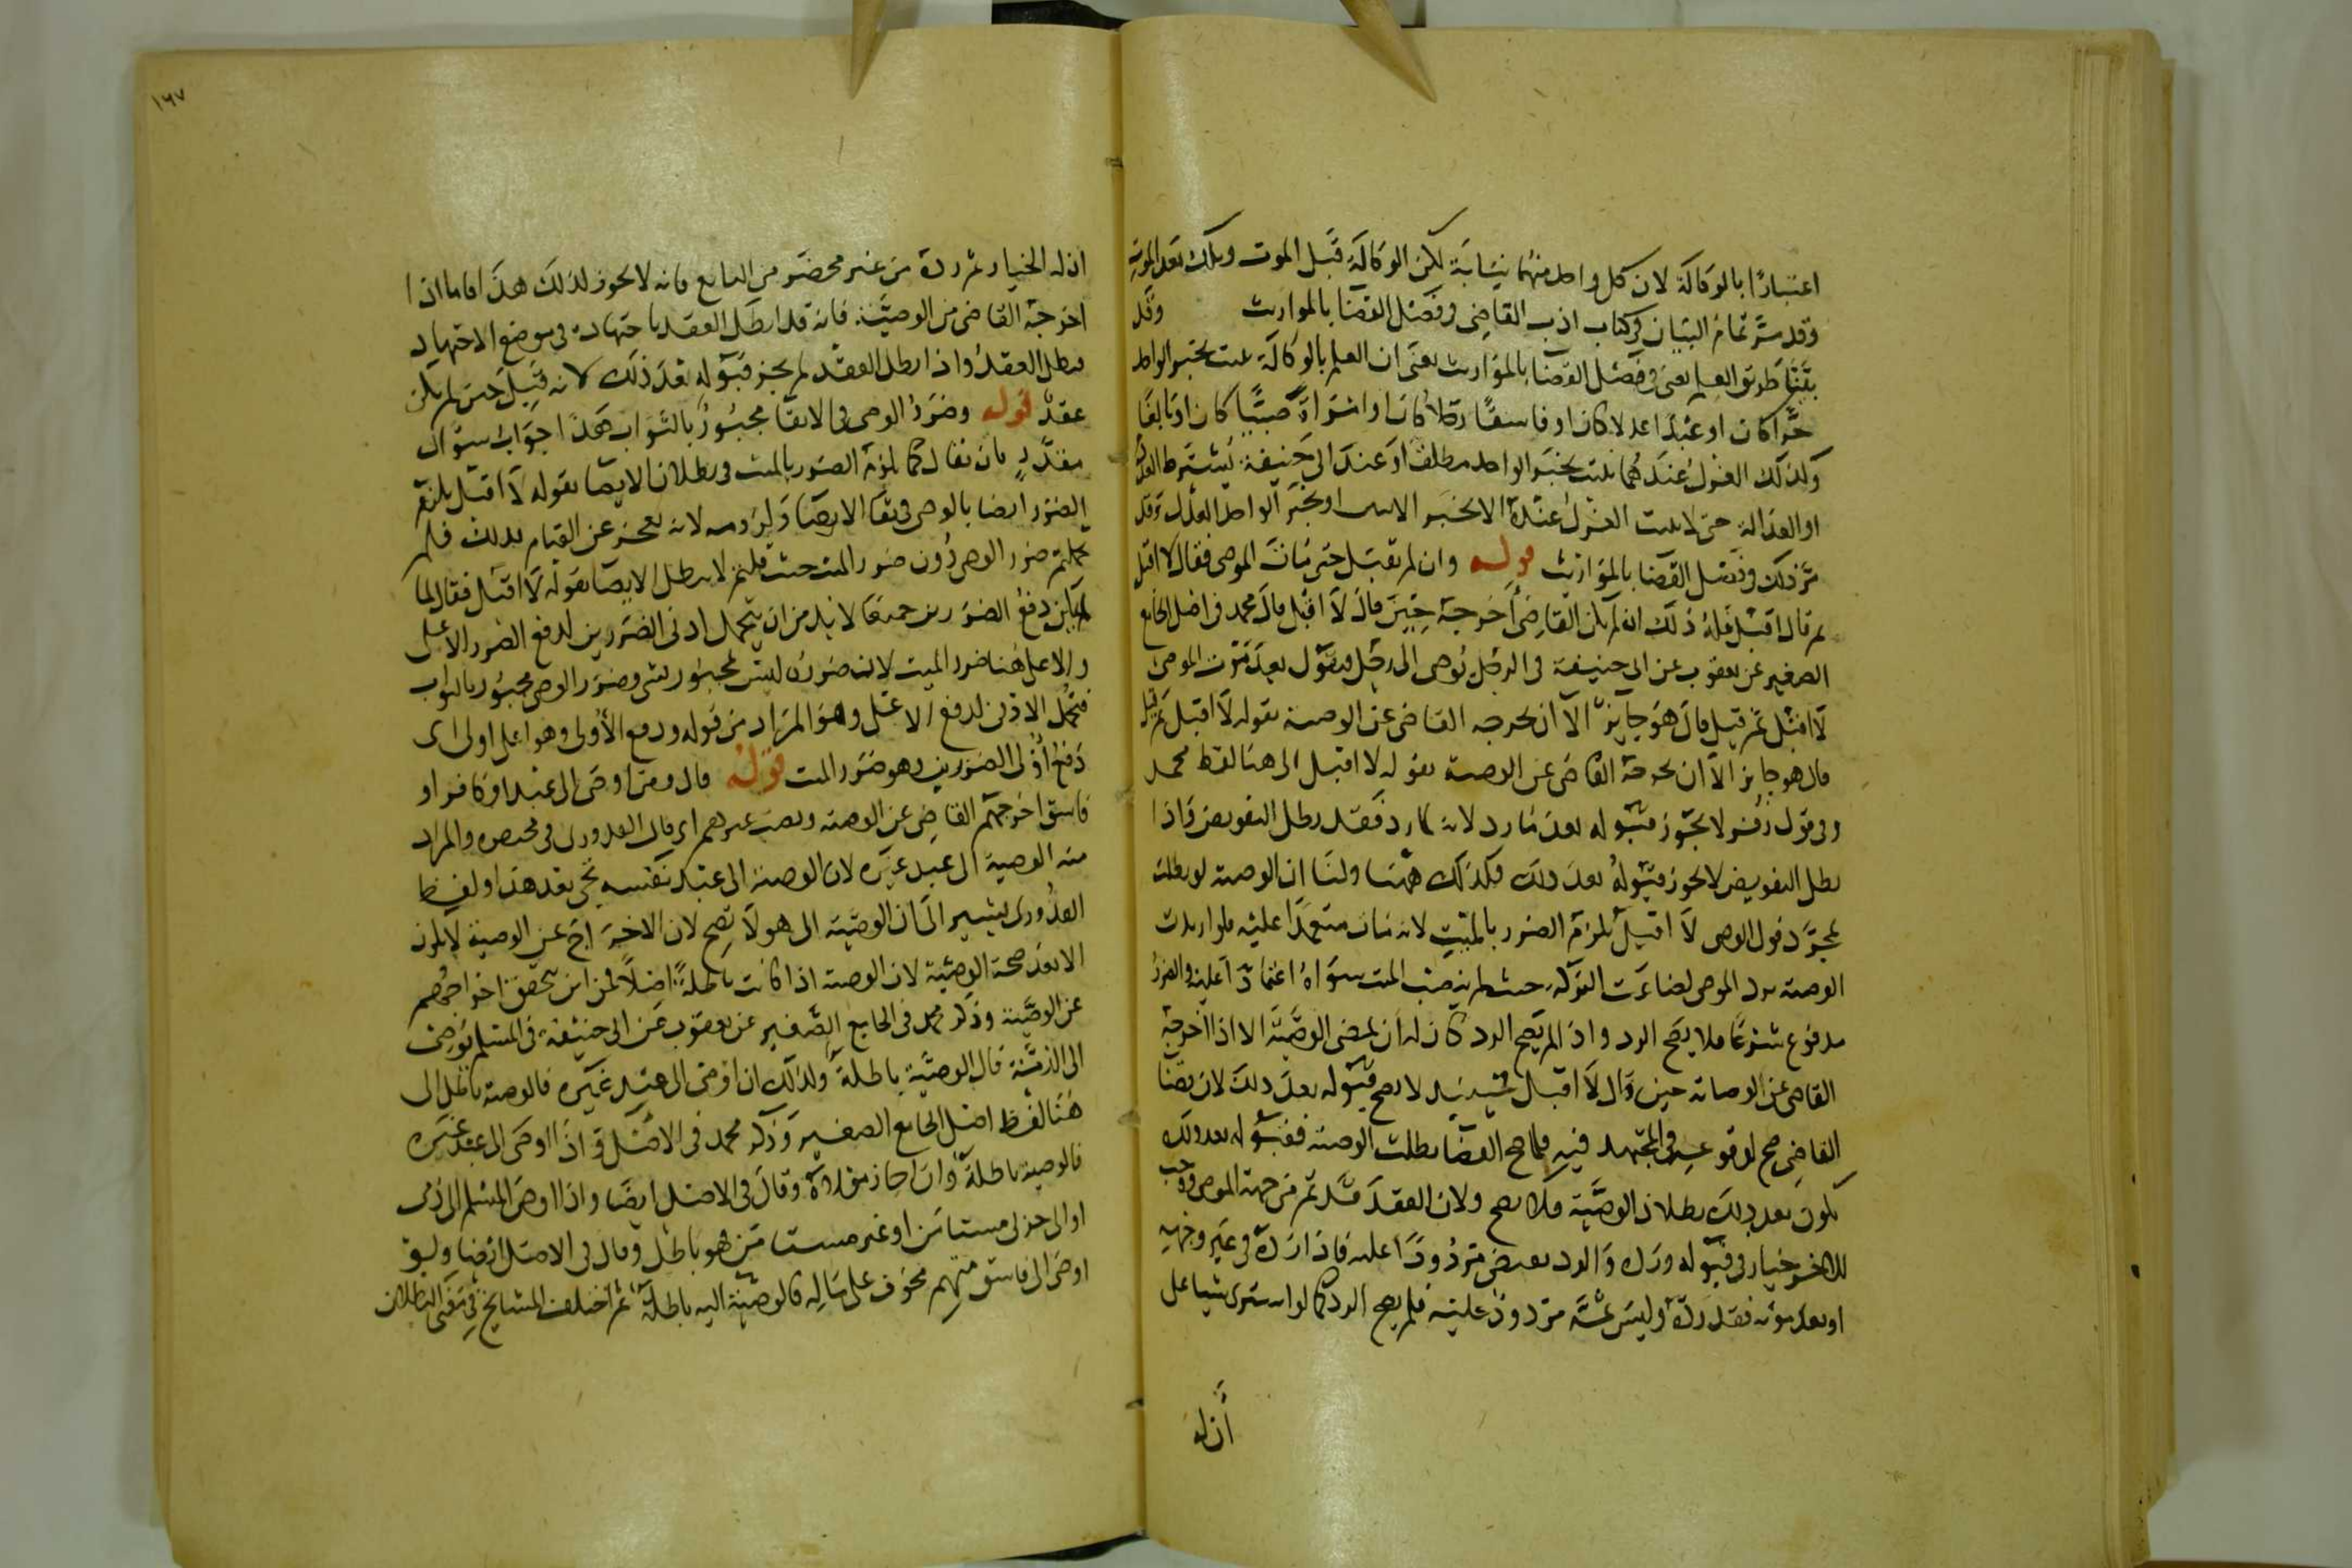 اعتبارًا بالوكالة لان كل واحد منهما نيابة لكن الوكالة قبل الموت وتلك بعد الموت
وقد مر تمام البيان في كتاب ادب القاضي في فصل القضا بالمواريث وقد
بينا طريق العلم يعني في فصل القضا بالمواريث يعني ان العلم بالوكالة يثبت بخبر الواحد
حرا كان او عبدا عدلا كان او فاسقا رجلا كان او امراة صبيا كان او بالغا
وكذلك العزل عندهما يثبت بخبر الواحد مطلقا وعند ابي حنيفة يشترط العدد
او العدالة حتى لا يثبت العزل عنده الا بخبر الاثنين او بخبر الواحد العدل وقد
مر ذلك في فصل القضا بالمواريث قوله وان لم يقبل حتى مات الموصي فقال لا اقبل
ثم قال اقبل فله ذلك ان لم يكن القاضي اخرجه حين قال لا اقبل قال محمد في اصل الجامع
الصغير عن يعقوب عن ابي حنيفة في الرجل يوصي الى رجل فيقول بعد موت الموصي
لا اقبل ثم قبل قال هو جايز الا ان يخرجه القاضي عن الوصية بقوله لا اقبل ثم قبل
قال هو جايز الا ان يخرجه القاضي عن الوصية بقوله لا اقبل الى هنا لفظ محمد
وفي قول زفر لا يجوز قبوله بعد ما رد لانه لما رد فقد بطل التفويض واذا
بطل التفويض لا يجوز قبوله بعد ذلك فكذلك ههنا ولنا ان الوصية لو بطلت
بمجرد قول الوصي لا اقبل يلزم الضرر بالميت لانه مات معتمدا عليه فلو ابطلت
الوصية برد الموصى لضاعت التركة حيث لم ينصب الميت سواه اعتمادًا عليه والضرر
مدفوع شرعا فلا يصح الرد واذا لم يصح الرد كان له ان يمضي الوصية الا اذا اخرجه
القاضي عن الوصاية حين قال لا اقبل فحينئذ لا يصح قبوله بعد ذلك لان قضا
القاضي صح لوقوعه في المجتهد فيه فلما صح القضا بطلت الوصية فقبوله بعد ذلك
يكون بعد ذلك بطلان الوصية فلا يصح ولان العقد قد تم من جهة الموصي ووجب
للاخر خيار في قبوله ورده والرد يعرض مردودًا عليه فاذا رده في غير وجهه
او بعد موته فقد رده وليس ثمة مردود عليه فلم يصح الرد كما لو اشترى شيا على
أنله
١٦٧
انه له الخيار ثم رده من غير محضر من البايع فانه لا يجوز لذلك هذا فاما اذا
اخرجه القاضي من الوصية فانه قد ابطل العقد باجتهاده في موضع الاجتهاد
فبطل العقد واذا بطل العقد لم يجز قبوله بعد ذلك لانه قبل حين لم يكن
عقد قوله وضرر الوصي في الابقا مجبور بالثواب هذا جواب سوال
مقدر بان يقال كما يلزم الضرر بالميت في بطلان الايصا بقوله لا اقبل يلزم
الضرر ايضا بالوصي في بقا الايصا ولزومه لانه يعجز عن القيام بذلك فلم
تحملتم ضرر الوصي دون ضرر الميت حيث قلتم لا يبطل الايصا بقوله لا اقبل فقال لما
لم يكن دفع الضررين جميعا لا بد من ان يتحمل ادنى الضررين لدفع الضرر الاعلى
والاعلى هنا ضرر الميت لان ضرره ليس بمجبور بشي وضرر الوصي مجبور بالثواب
فتحمل الادنى لدفع الاعلى وهو المراد من قوله ودفع الأولى وهو اعلى اولى اى
دفع أولى الضررين وهو ضرر الميت قوله قال ومن اوصى الى عبد او كافر او
فاسق اخرجهم القاضي عن الوصية ونصب غيرهم اي قال القدوري في مختصره والمراد
منه الوصية الى عبد غيره لان الوصية الى عبد نفسه تجي بعد هذا ولفظ
القدوري يشير الى ان الوصية الى هولا تصح لان الاخراج عن الوصية لا يكون
الا بعد صحة الوصية لان الوصية اذا كانت باطلة اصلا فمن اين يتحقق اخراجهم
عن الوصية وذكر محمد في الجامع الصغير عن يعقوب عن ابي حنيفة في المسلم يوصي
الى الذمي قال الوصية باطلة وكذلك ان اوصى الى عبد غيره فالوصية باطل الى
هنا لفظ اصل الجامع الصغير وذكر محمد في الاصل في اذا اوصى الى عبد غيره
فالوصية باطلة وان اجاز مولاه وقال في الاصل ايضا واذا اوصى المسلم الى ذمي
او الى حربي مستامن او غير مستامن فهو باطل وقال في الاصل ايضا ولو
اوصى الى فاسق متهم مخوف على ماله فالوصية اليه باطلة ثم اختلف المشايخ في معنى البطلان